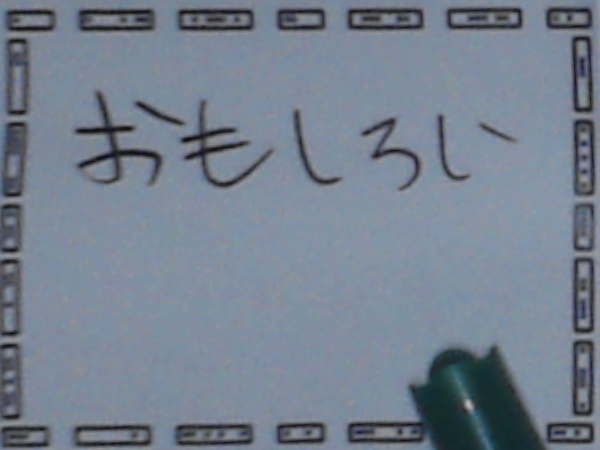 おもしろい